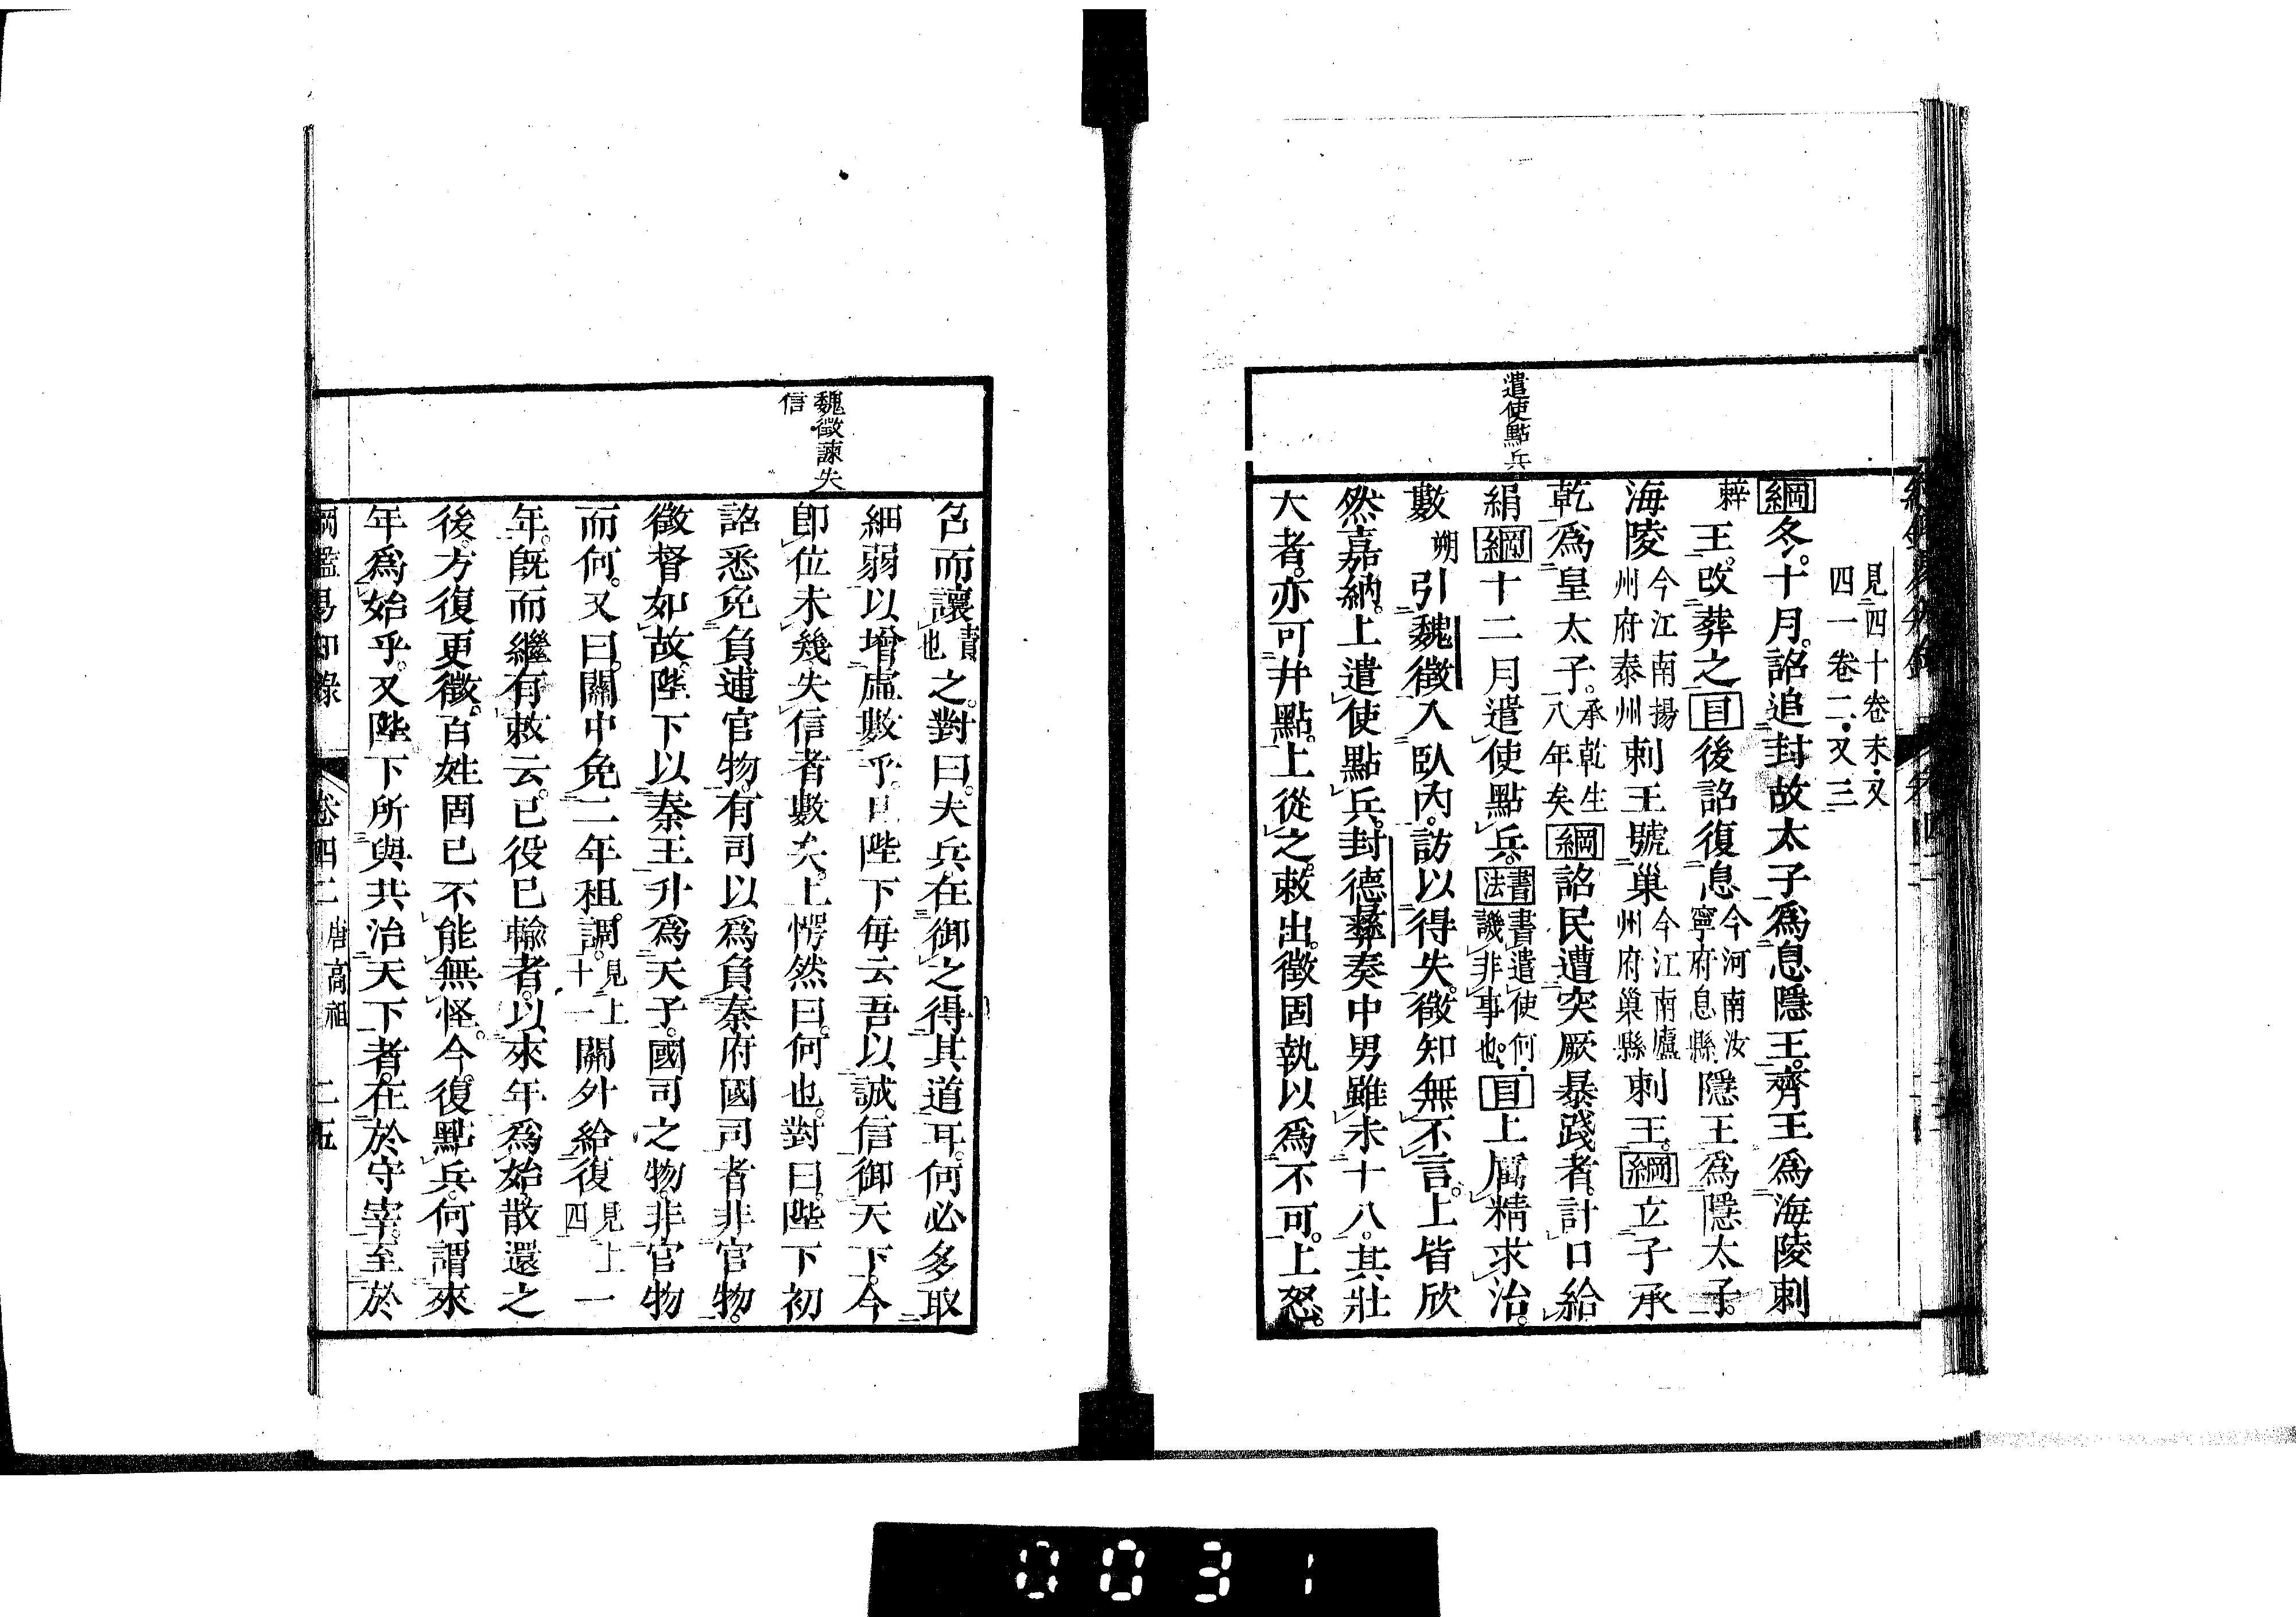 遣使點兵
見四十卷末·又
四一卷二·又三
綱冬。十月。詔追封故太子爲息隱王。齊王爲海陵剌
王。改葬之目後詔復息今河南汝寧府息縣隱王爲隱太子。
海陵今江南揚州府泰州剌王號巢今江南廬州府巢縣剌王。綱立子承
乾爲皇太子。承乾生八年矣綱詔民遭突厥暴踐者。計口給
絹綱十二月遣使點兵。書法書遣使何。譏非事也。目上厲精求治。
數朔引魏徵入臥內。訪以得失。徵知無不言。上皆欣
然嘉納。上遣使點兵。封德彝奏中男雖未十八。其壯
大者。亦可幷點。上從之。敕出。徵固執以爲不可。上怒。
魏徵諫失
信
召而讓責也之。對曰。夫兵在御之得其道耳。何必多取
細弱以增虛數乎。且陛下每云吾以誠信御天下。今
卽位未幾失信者數矣。上愕然曰。何也。對曰。陛下初
詔悉免負逋官物。有司以爲負秦府國司者非官物。
徵督如故。陛下以秦王升爲天子。國司之物。非官物
而何。又曰。關中免二年租調。見上十一關外給復見上一四一
年。旣而繼有敕云。已役已輸者。以來年爲始。散還之
後。方復更徵。百姓固已不能無怪。今。復點兵。何謂來
年爲始乎。又陛下所與共治天下者。在於守宰。至於
綱鑑易知錄 卷四二 唐高祖 二五